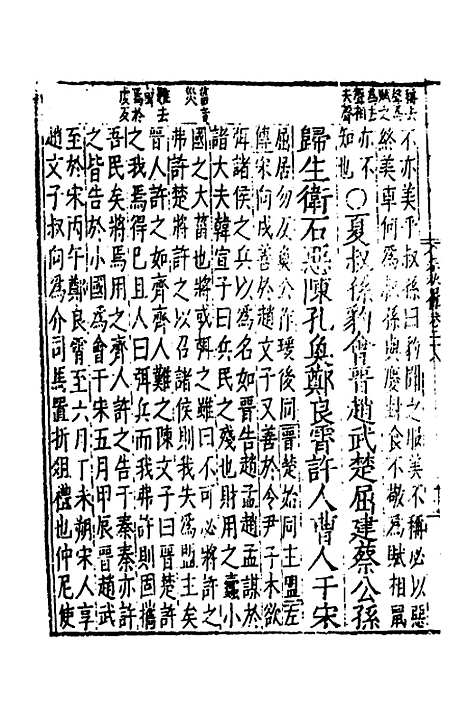 稱去
聲爲
賦之
爲去
聲相
菑音
災
難去
聲
焉於
虔反
不亦美乎叔孫曰豹聞之服美不稱必以惡
終美車何爲叔孫與慶封食不敬爲賦相鼠
亦不
知也
○夏叔孫豹會晉趙武楚屈建蔡公孫
歸生衛石惡陳孔奐鄭良霄許人曹人于宋
屈居勿反奐公作瑗後同晉楚始同主盟左
傳宋向戌善於趙文子又善於令尹子木欲
弭諸侯之兵以爲名如晉告趙孟趙孟謀於
諸大夫韓宣子曰兵民之殘也財用之蠹小
國之大菑也將或弭之雖曰不可必將許之
弗許楚將許之以召諸侯則我失爲盟主矣
晉人許之如齊齊人難之陳文子曰晉楚許
之我焉得已且人曰弭兵而我弗許則固攜
吾民矣將焉用之齊人許之告于秦秦亦許
之皆告於小國爲會于宋五月甲辰晉趙武
至於宋丙午鄭良霄至六月丁未朔宋人享
趙文子叔向爲介司馬置折俎禮也仲尼使